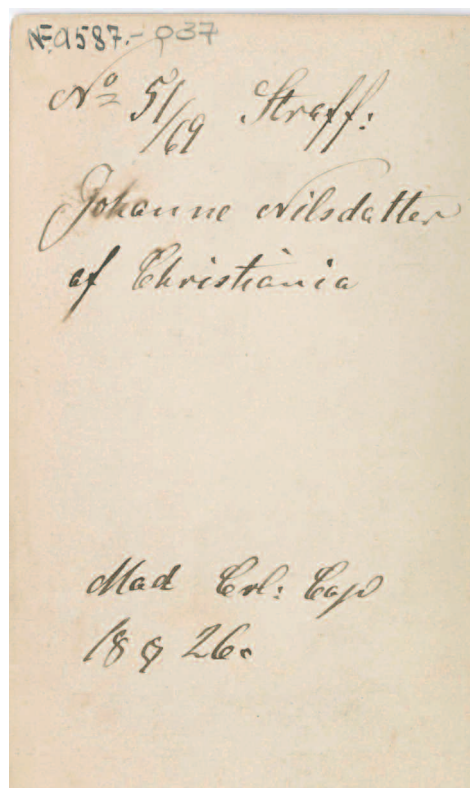 NF.9587.-037
No 51/69 Straff:
Johanne Nilsdatter
af Christiania
Mad Crl: Cap
18 & 26.